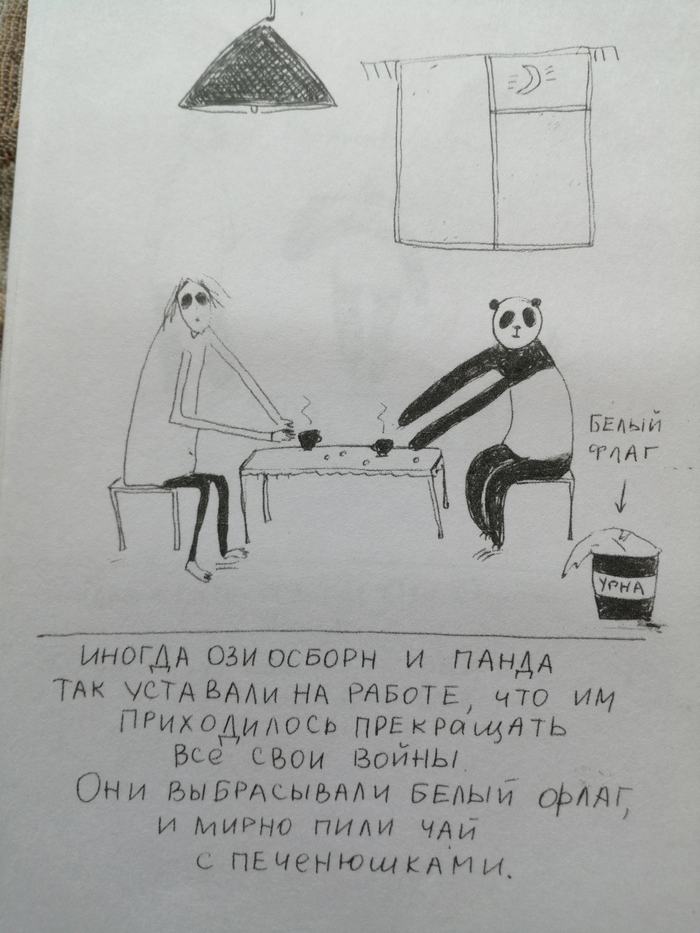 БЕЛЫЙ
ФЛАГ
УРНА
ИНОГДА ОЗИ ОСБОРН И ПАНДА
ТАК УСТАВАЛИ НА РАБОТЕ, ЧТО ИМ
ПРИХОДИЛОСЬ ПРЕКРАЩАТЬ
ВСЕ СВОИ ВОЙНЫ.
ОНИ ВЫБРАСЫВАЛИ БЕЛЫЙ ФЛАГ,
И МИРНО ПИЛИ ЧАЙ
С ПЕЧЕНЮШКАМИ.